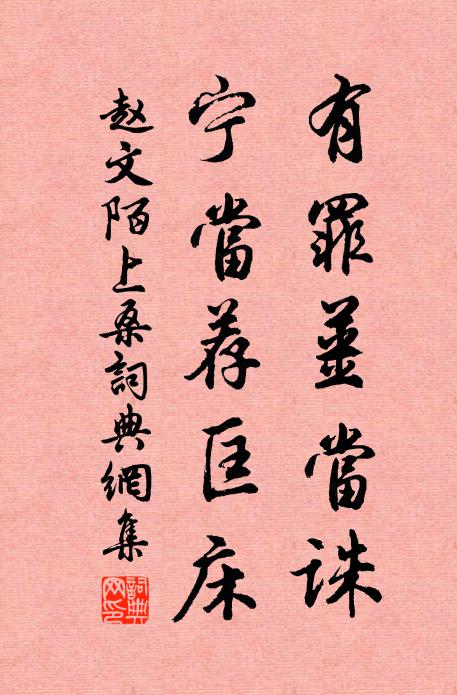 有罪當誅
宁當荐匡床
赵文陌上桑詞典網集
詞典网印